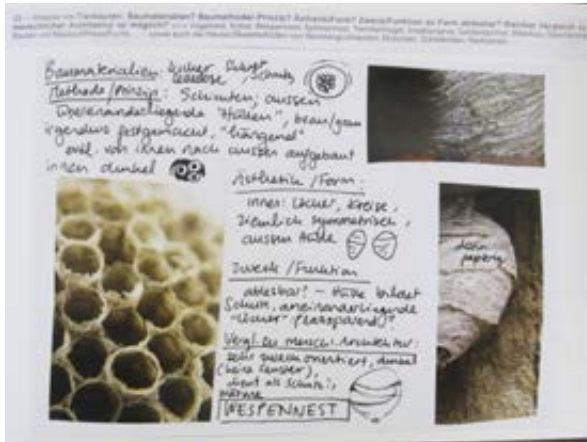 Analyse von Tierbauten: Baumaterialien? Baumethode/-Prinzip? Ästhetik/Form? Zweck/Funktion an Form ablesbar?
Baumaterialien:
Methode/Prinzip: Schichten; aussen
übereinanderliegende "Hüllen", braun/grau
irgendwo festgemacht, "hängend"
evtl. von innen nach aussen aufgebaut
innen dunkel
Ästhetik/Form:
innen: Löcher, Kreise,
ziemlich symmetrisch,
aussen Hülle
Zweck/Funktion
ablesbar? – Hülle bildet
Schutz, aneinanderliegende
"Löcher" platzsparend?
Vergl. zu menschl. Architektur:
sehr zweckorientiert, dunkel
(keine Fenster),
dient als Schutz,
Wärme
WESPENNEST
dünn
papierig